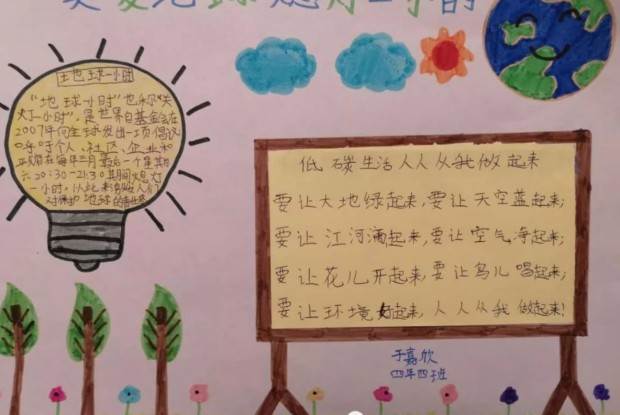 关爱地球熄灯一小时
地球一小时
"地球一小时"也称"关
灯一小时",是世界自基金会在
2007年向全球发出一项倡议
呼吁个人、社区、企业和
政府在每年三月最后一个星期
六20:30-21:30期间熄灯
一小时,以此来激发人们
对保护地球的责任感
低碳生活人人从我做起来
要让大地绿起来,要让天空蓝起来;
要让江河清起来,要让空气净起来;
要让花儿开起来,要让鸟儿唱起来;
要让环境好起来,人人从我做起来!
于嘉欣
四年四班